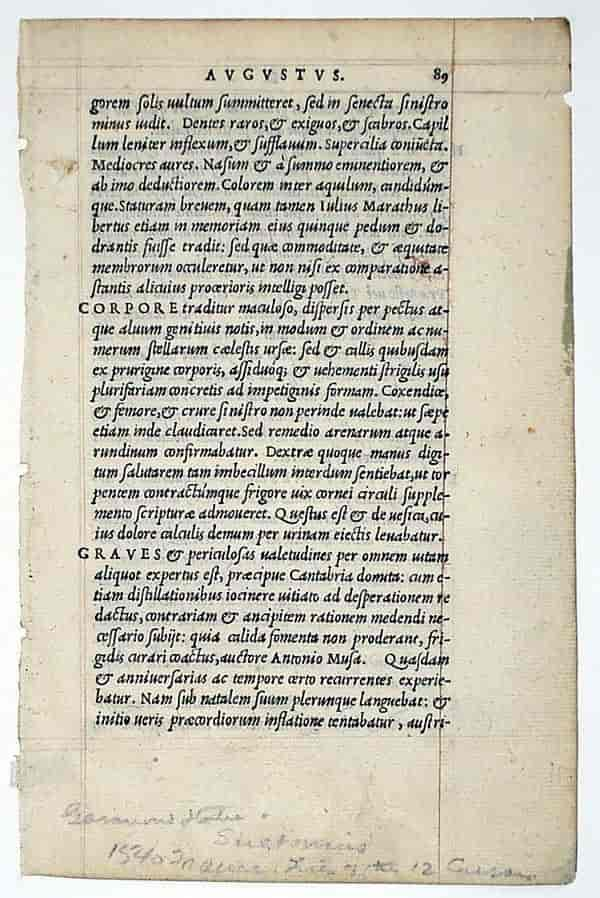 AVGVSTVS. 89
gorem solis uultum summitteret, sed in senecta sinistro
minus uidit. Dentes raros, & exiguos, & scabros. Capil
lum leniter inflexum, & sufflauum. Supercilia coniũcta.
Mediocres aures. Nasum & à summo eminentiorem, &
ab imo deductiorem. Colorem inter aquilum, candidúm-
que. Staturam breuem, quam tamen Iulius Marathus li-
bertus etiam in memoriam eius quinque pedum & do-
drantis fuisse tradit: sed quæ commoditate, & æquitate
membrorum occuleretur, ut non nisi ex comparatione a-
stantis alicuius procerioris intelligi posset.
CORPORE traditur maculoso, dispersis per pectus at-
que aluum genitiuis notis, in modum & ordinem ac nu-
merum stellarum cælestis ursæ: sed & callis quibusdam
ex prurigine corporis, assiduoq; & uehementi strigilis usu
plurifariam concretis ad impetiginis formam. Coxendice,
& femore, & crure sinistro non perinde ualebat: ut sæpe
etiam inde claudicaret. Sed remedio arenarum atque a-
rundinum confirmabatur. Dextræ quoque manus digi-
tum salutarem tam imbecillum interdum sentiebat, ut tor
pentem contractúmque frigore uix cornei circuli supple-
mento scripturæ admoueret. Questus est & de uesica, cu-
ius dolore calculis demum per urinam eiectis leuabatur.
GRAVES & periculosas ualetudines per omnem uitam
aliquot expertus est, præcipue Cantabria domita: cum e-
tiam distillationibus iocinere uitiato ad desperationem re
dactus, contrariam & ancipitem rationem medendi ne-
cessario subijt: quia calida fomenta non proderant, fri-
gidis curari coactus, auctore Antonio Musa. Quasdam
& anniuersarias ac tempore certo recurrentes experie-
batur. Nam sub natalem suum plerunque languebat: &
initio ueris præcordiorum inflatione tentabatur, austri-
Suetonius
1540 of the 12